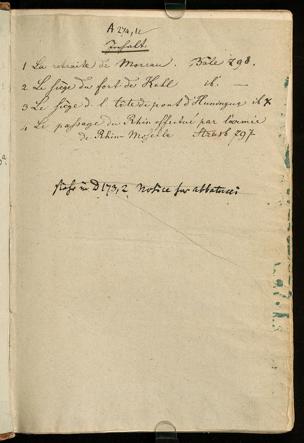 A 274, 1c
Inhalt.
1 La retraite de Moreau. Bâle 798.
2 Le siège du fort de Kehl ib. —
3 Le siège d. l. tete de pont d'Huningue ib
4 Le passage du Rhin effectué par l'armée
de Rhin-Moselle Strasb 297
D 173, 2 Notice sur abbatucci